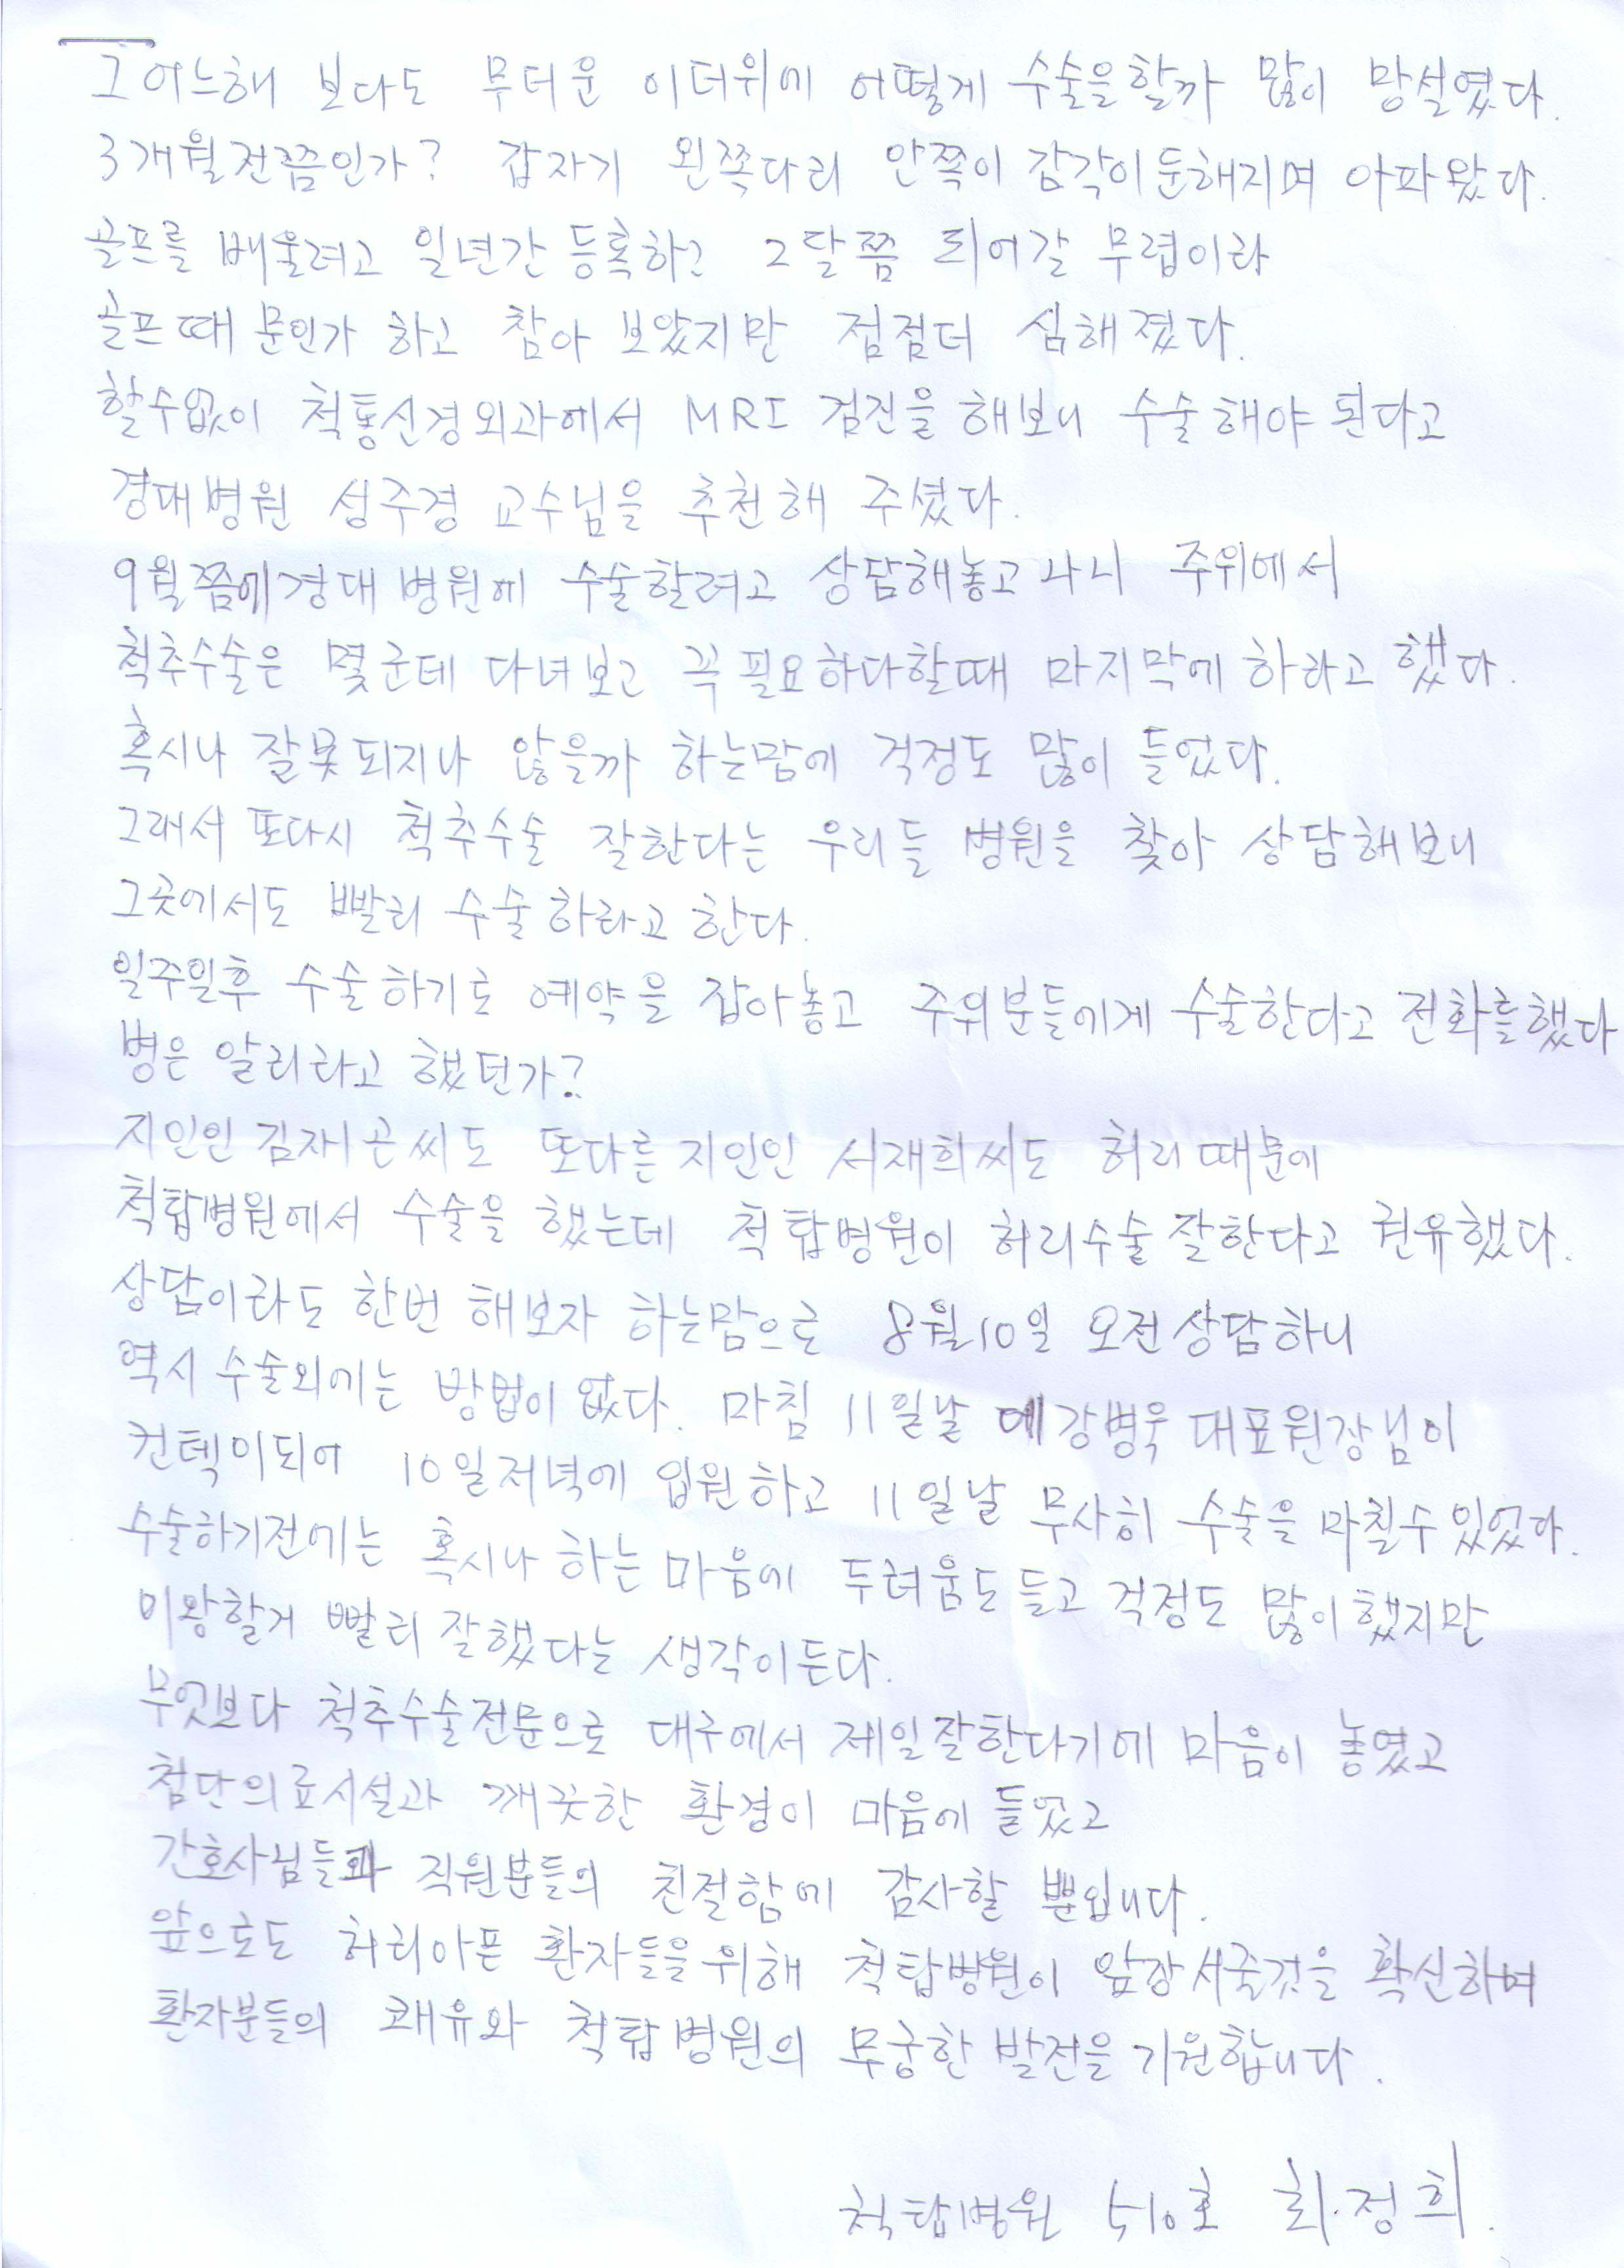 그어느해 보다도 무더운 이더위에 어떻게 수술을할까 많이 망설였다.
3개월전쯤인가? 갑자기 왼쪽다리 안쪽이 감각이둔해지며 아파왔다.
골프를 배울려고 일년간 등록하고 2달쯤 되어갈 무렵이라
골프때문인가 하고 참아 보았지만 점점더 심해졌다.
할수없이 척통신경외과에서 MRI 검진을 해보니 수술해야 된다고
경대병원 성주경 교수님을 추천해 주셨다.
9월쯤에경대병원에 수술할려고 상담해놓고나니 주위에서
척추수술은 몇군데 다녀보고 꼭필요하다할때 마지막에 하라고 했다.
혹시나 잘못되지나 않을까 하는맘에 걱정도 많이 들었다.
그래서 또다시 척추수술 잘한다는 우리들 병원을 찾아 상담해보니
그곳에서도 빨리 수술하라고 한다.
일주일후 수술하기로 예약을 잡아놓고 주위분들에게 수술한다고 전화를했다
병은 알리라고 했던가?
지인인 김재곤씨도 또다른 지인인 서재희씨도 허리때문에
척탑병원에서 수술을 했는데 척탑병원이 허리수술잘한다고 권유했다.
상담이라도 한번 해보자 하는맘으로 8월10일 오전상담하니
역시 수술외에는 방법이 없다. 마침 11일날 에강병욱대표원장님이
컨텍이되어 10일저녁에 입원하고 11일날 무사히 수술을 마칠수있었다.
수술하기전에는 혹시나 하는마음에 두려움도들고 걱정도 많이했지만
이왕할거 빨리잘했다는 생각이든다.
무엇보다 척추수술전문으로 대구에서 제일잘한다기에 마음이 놓였고
첨단의료시설과 깨끗한 환경이 마음에 들었고
간호사님들과 직원분들의 친절함에 감사할 뿐입니다.
앞으로도 허리아픈 환자들을위해 척탑병원이 앞장서줄것을 확신하며
환자분들의 쾌유와 척탑병원의 무궁한 발전을기원합니다.
척탑병원 510호 최정희.